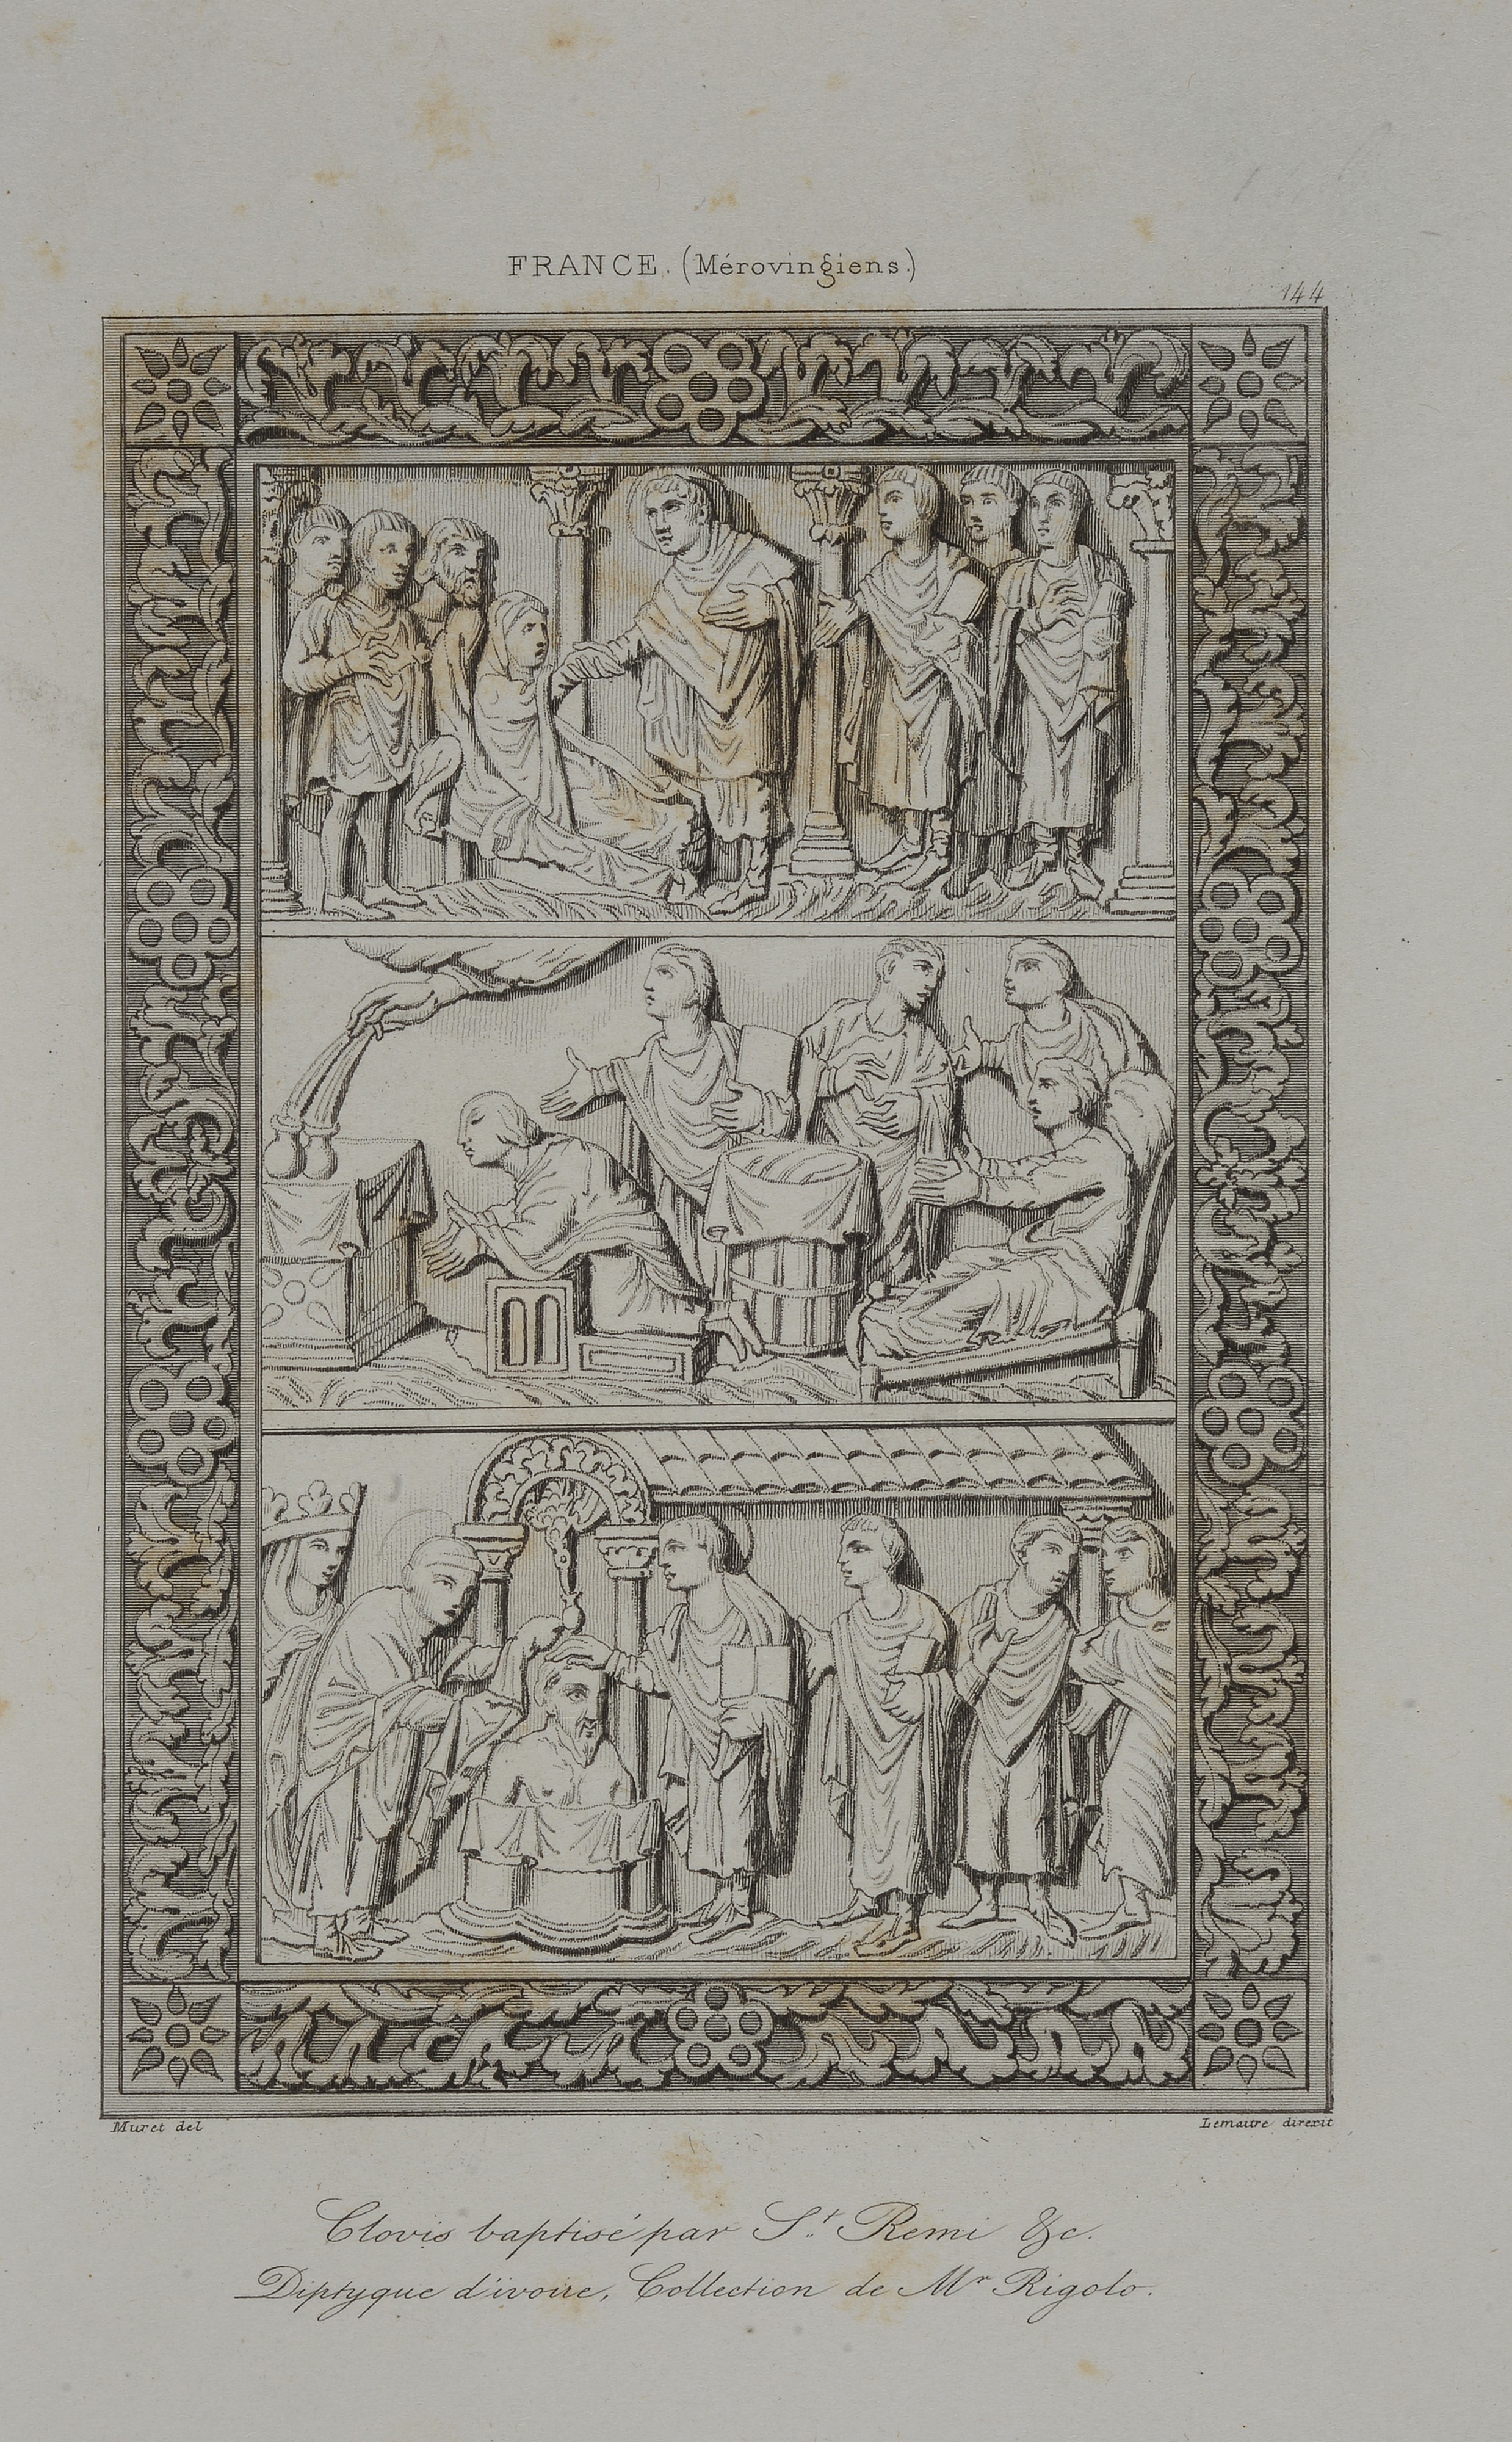 FRANCE. (Mérovingiens.)
144
Muret del
Lemaitre direxit
Clovis baptisé par S.t Remi &c.
Diptyque d'ivoire, Collection de Mr Rigolo.